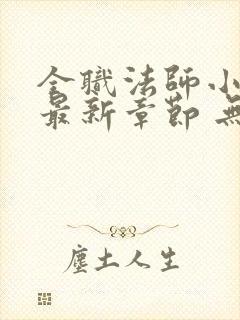 全職法師小
最新章節 無
塵土人生